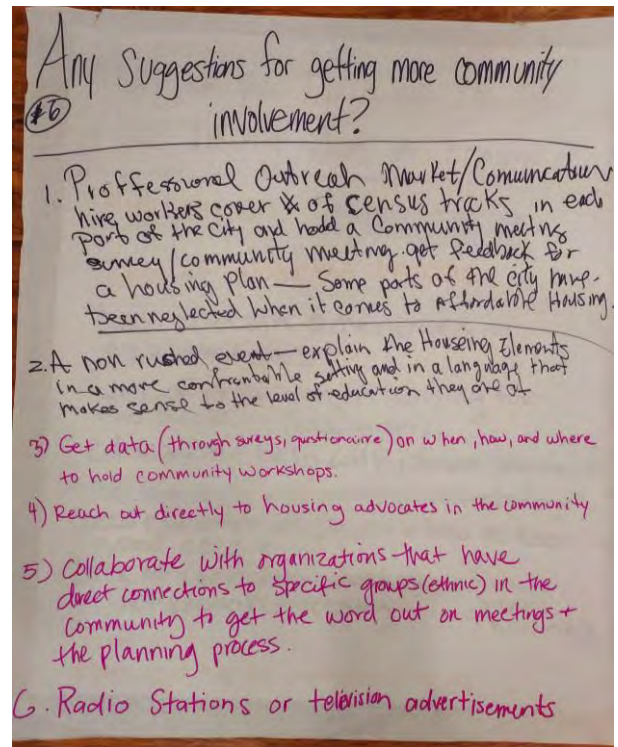 Any Suggestions for getting more community
#6 involvement?
1. Proffessional Outreach Market/Comuncation
hire workers cover % of census tracks in each
Part of the City and hold a Community meeting
survey/community meeting. get feedback for
a housing plan — Some parts of the city have
been neglected when it comes to Affordable Housing.
2. A non rushed event — explain the Houseing Elements
in a more confrontable setting and in a language that
makes sense to the level of education they are at
3) Get data (through sureys, questionairre) on when, how, and where
to hold community workshops.
4) Reach out directly to housing advocates in the community
5) Collaborate with organizations that have
direct connections to specific groups (ethnic) in the
community to get the word out on meetings +
the planning process.
6. Radio Stations or television advertisements